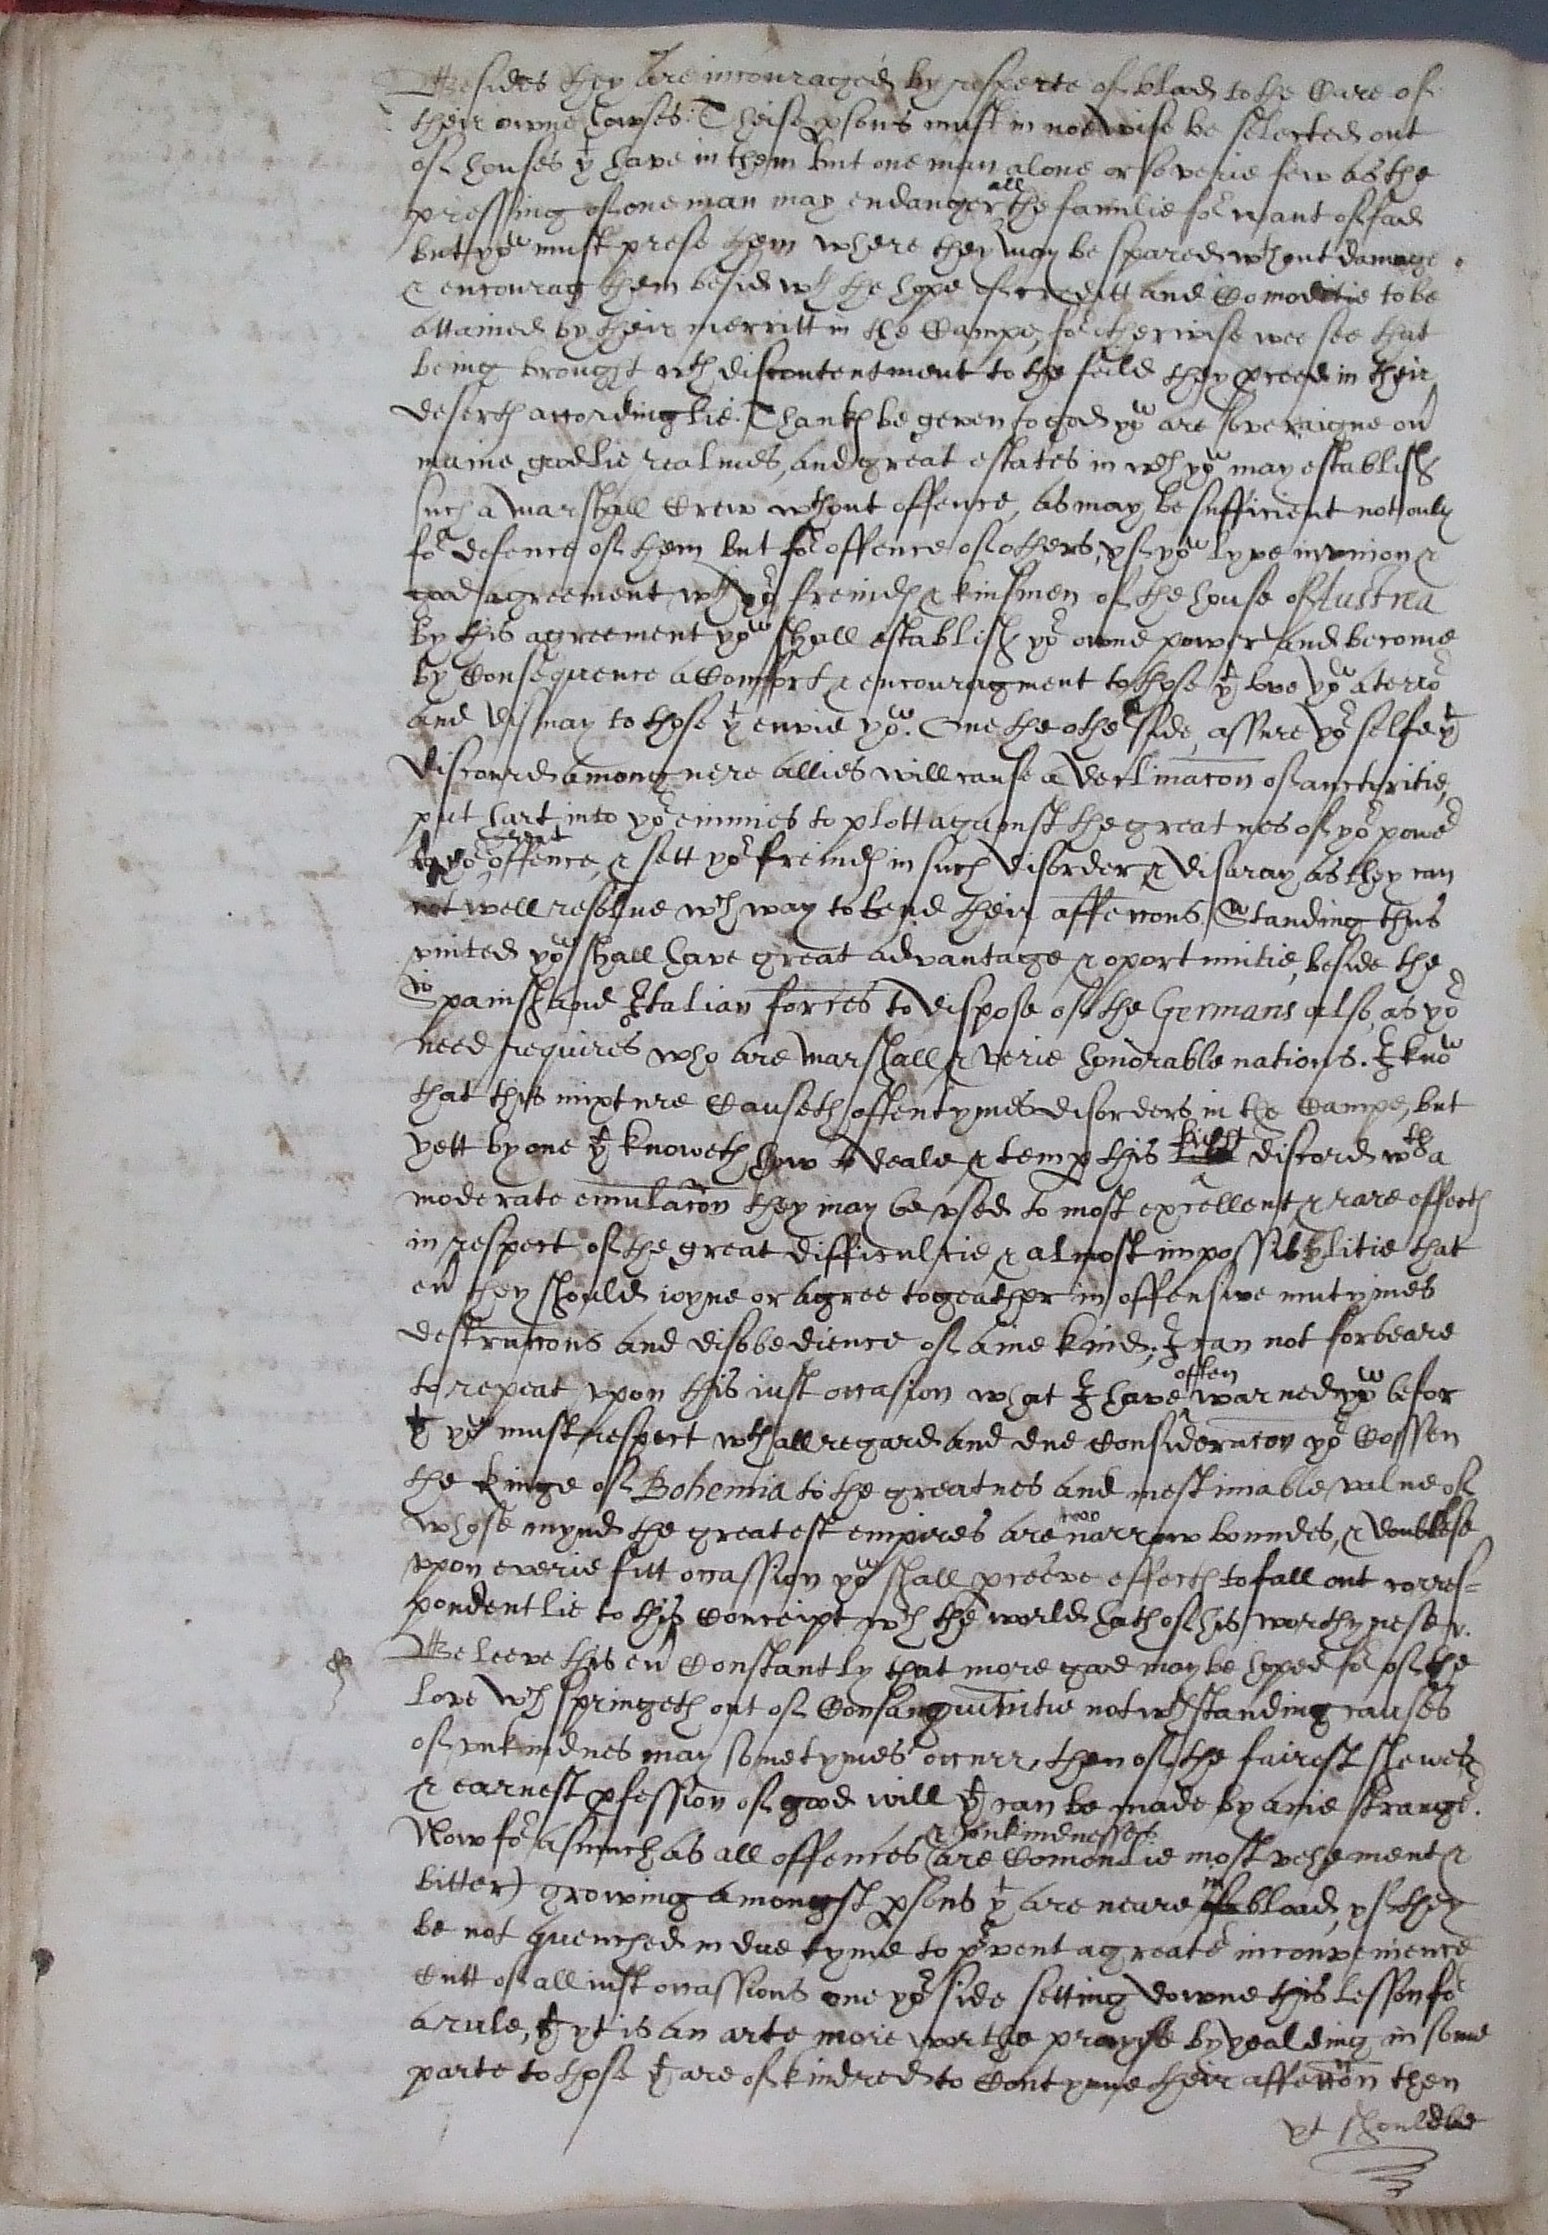 Besides they are incouraged by respecte of blood to the Care of
their owne howses: Theise psons must in noe wise be selected out
of houses yt have in them but one man alone or so verie few as the
pressing of one man may endanger all the familie for want of food
but yow must prese them where they may be spared wthout damage
& encourag them besid wth the hope of creditt and Comoditie to be
attained by their merritt in the Campe, for otherwise wee see that
being brought wth discontentment to the feild they pceed in their
deserts accordinglie. Thanks be geven to god yow are soveraigne on
manie goodlie realmes, and great estates in wch yow may establish
such a marshall Crew wthout offence, as may be sufficient not only
for defence of them but for offence of others, yf yow lyve in vnion &
good agreement wth yor freinds & kinsmen of the house of Austria
by this agreement yow shall establish yor owne power and become
by Consequence a Comffort & encouragment to those yt love yow a terror
and dismay to those yt envie yow. One the other side, assure yor selfe yt
discourd among nere allies will cause a declinacon of aucthoritie,
put hart into yor enimies to plott against the greatnes of yor power
to yor great offence, & sett yor freinds in such disorder & disaray as they can
not well resolue wch way to bend their affeccons. Standing thus
vnited yow shall have great advantage & oportunitie, beside the
Spanish and Italian forces to dispose of the Germans also, as yor
need requires who are marshall & verie honorable nations. I know
that this mixture Causeth offentymes disorders in the Campe, but
yett by one yt knoweth how to deale & temp this light discord wth a
moderate emulacon they may be vsed to most excellent & rare effects
in respect of the great difficultie & almost impossibylitie that
eu they should ioyne or agree togeather in offensive mutynies
destruccons and disobedience of anie kind; I can not forbeare
to repeat vpon this iust occasion what I have often warned yow befor
yt yow must respect wth all regard and due Consideracon yor Cossen
the kinge of Bohemia to the greatnes and inestimable value of
whose mynd the greatest empires are too narrow boundes, & doubtlese
vpon everie fitt occassion yow shall pceive effects to fall out corres-
pondentlie to this Conceipt wch the world hath of his worthynese &.
Beleeve this eu Constantly that more good may be hoped for of the
love wch springeth out of Consanguinitie notwthstanding causes
of vnkindnes may sometymes occurr, then of the fairest shewes
& earnest pfession of good will yt can be made by anie stranger.
Now for asmuch as all offences & vnkindnesses (are Comonlie most vehement &
bitter) growing amongst psons yt are neare in blood, yf they
be not quenched in due tyme to prvent a greater inconvenience
Cutt of all iust occassions one yor side setting downe this lesson for
a rule, yt yt is an arte more worthe prayse by yealding in some
parte to those yt are of kindred to Contynue their affeccon then
yt should be